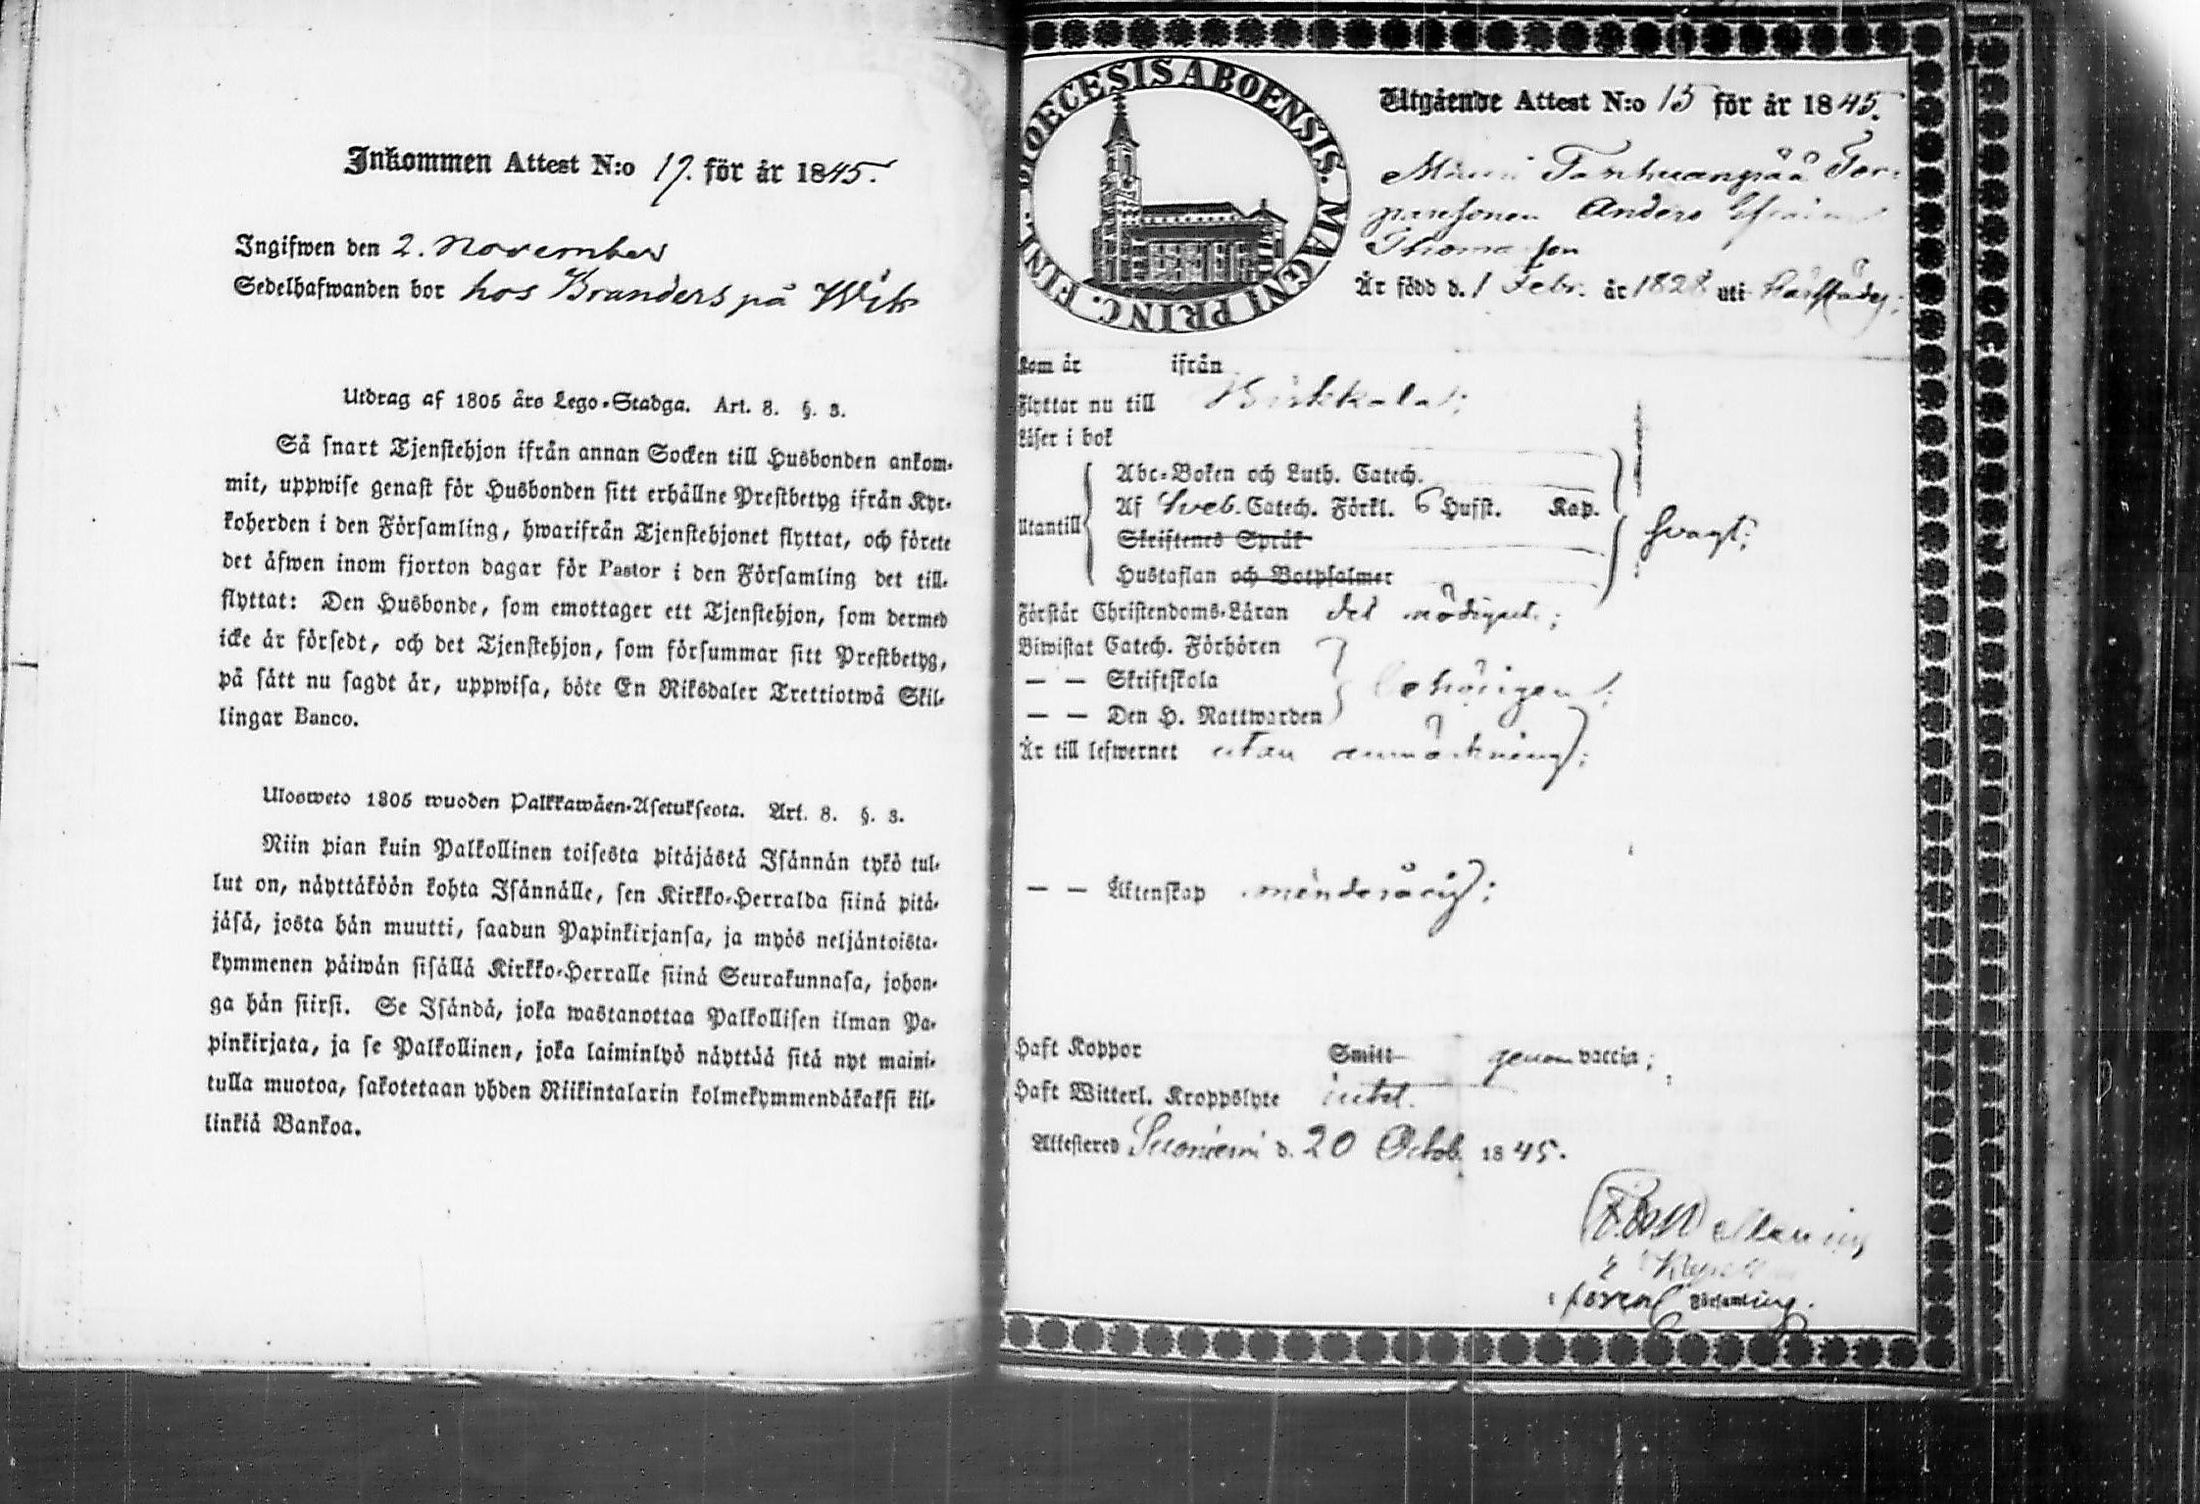 Inkommen Attest N:o 17. för år 1845.
Ingifwen den 2. November
Sedelhafwanden bor hos Branders på Wik
Utdrag af 1805 års Lego-Stadga. Art. 8. §. 3.
Så snart Tjenstehjon ifrån annan Socken till Husbonden ankom-
mit, uppwise genast för Husbonden sitt erhållne Prestbetyg ifrån Kyr-
koherden i den Församling, hwarifrån Tjenstehjonet flyttat, och förete
det äfwen inom fjorton dagar för Pastor i den Församling det till-
flyttat: Den Husbonde, som emottager ett Tjenstehjon, som dermed
icke är försedt, och det Tjenstehjon, som försummar sitt Prestbetyg,
på sätt nu sagdt är, uppwisa, böte En Riksdaler Trettiotwå Skil-
lingar Banco.
Ulosweto 1805 wuoden Palkkawäen-Asetuksesta. Art. 8. §. 3.
Niin pian kuin Palkollinen toisesta pitäjästä Isännän tykö tul-
lut on, näyttäköön kohta Isännälle, sen Kirkko-Herralda siinä pitä-
jäsä, josta hän muutti, saadun Papinkirjansa, ja myös neljäntoista-
kymmenen päiwän sisällä Kirkko-Herralle siinä Seurakunnasa, johon-
ga hän siirsi. Se Isändä, joka wastanottaa Palkollisen ilman Pa-
pinkirjata, ja se Palkollinen, joka laiminlyö näyttää sitä nyt maini-
tulla muotoa, sakotetaan yhden Riikintalarin kolmekymmendäkaksi kil-
linkiä Bankoa.
DIOECESIS ABOENSIS. MAGNI PRINC. FINL.
Utgående Attest N:o 15 för år 1845.
Tanhuanpää Tor-
paresonen Anders Efraim
Thomasson
Är född d. 1 Febr. år 1828 uti
Kom år ifrån
Flyttar nu till Birkkala;
Läser i bok
Utantill
Abc-Boken och Luth. Catech.
Af Sveb. Catech. Förkl. 6 Hufst. Kap.
Skriftenes Språk
Hustaflan och Botpsalmer
svagt;
Förstår Christendoms-Läran det nödigaste;
Biwistat Catech. Förhören
— — Skriftskola behörigen;
— — Den H. Nattwarden
Är till lefwernet utan anmärkning;
— — Äktenskap minderårig;
Haft Koppor Smitt genom vaccin;
Haft Witterl. Kroppslyte intet.
Attesteres Suoniemi d. 20 Octob. 1845.
församling.